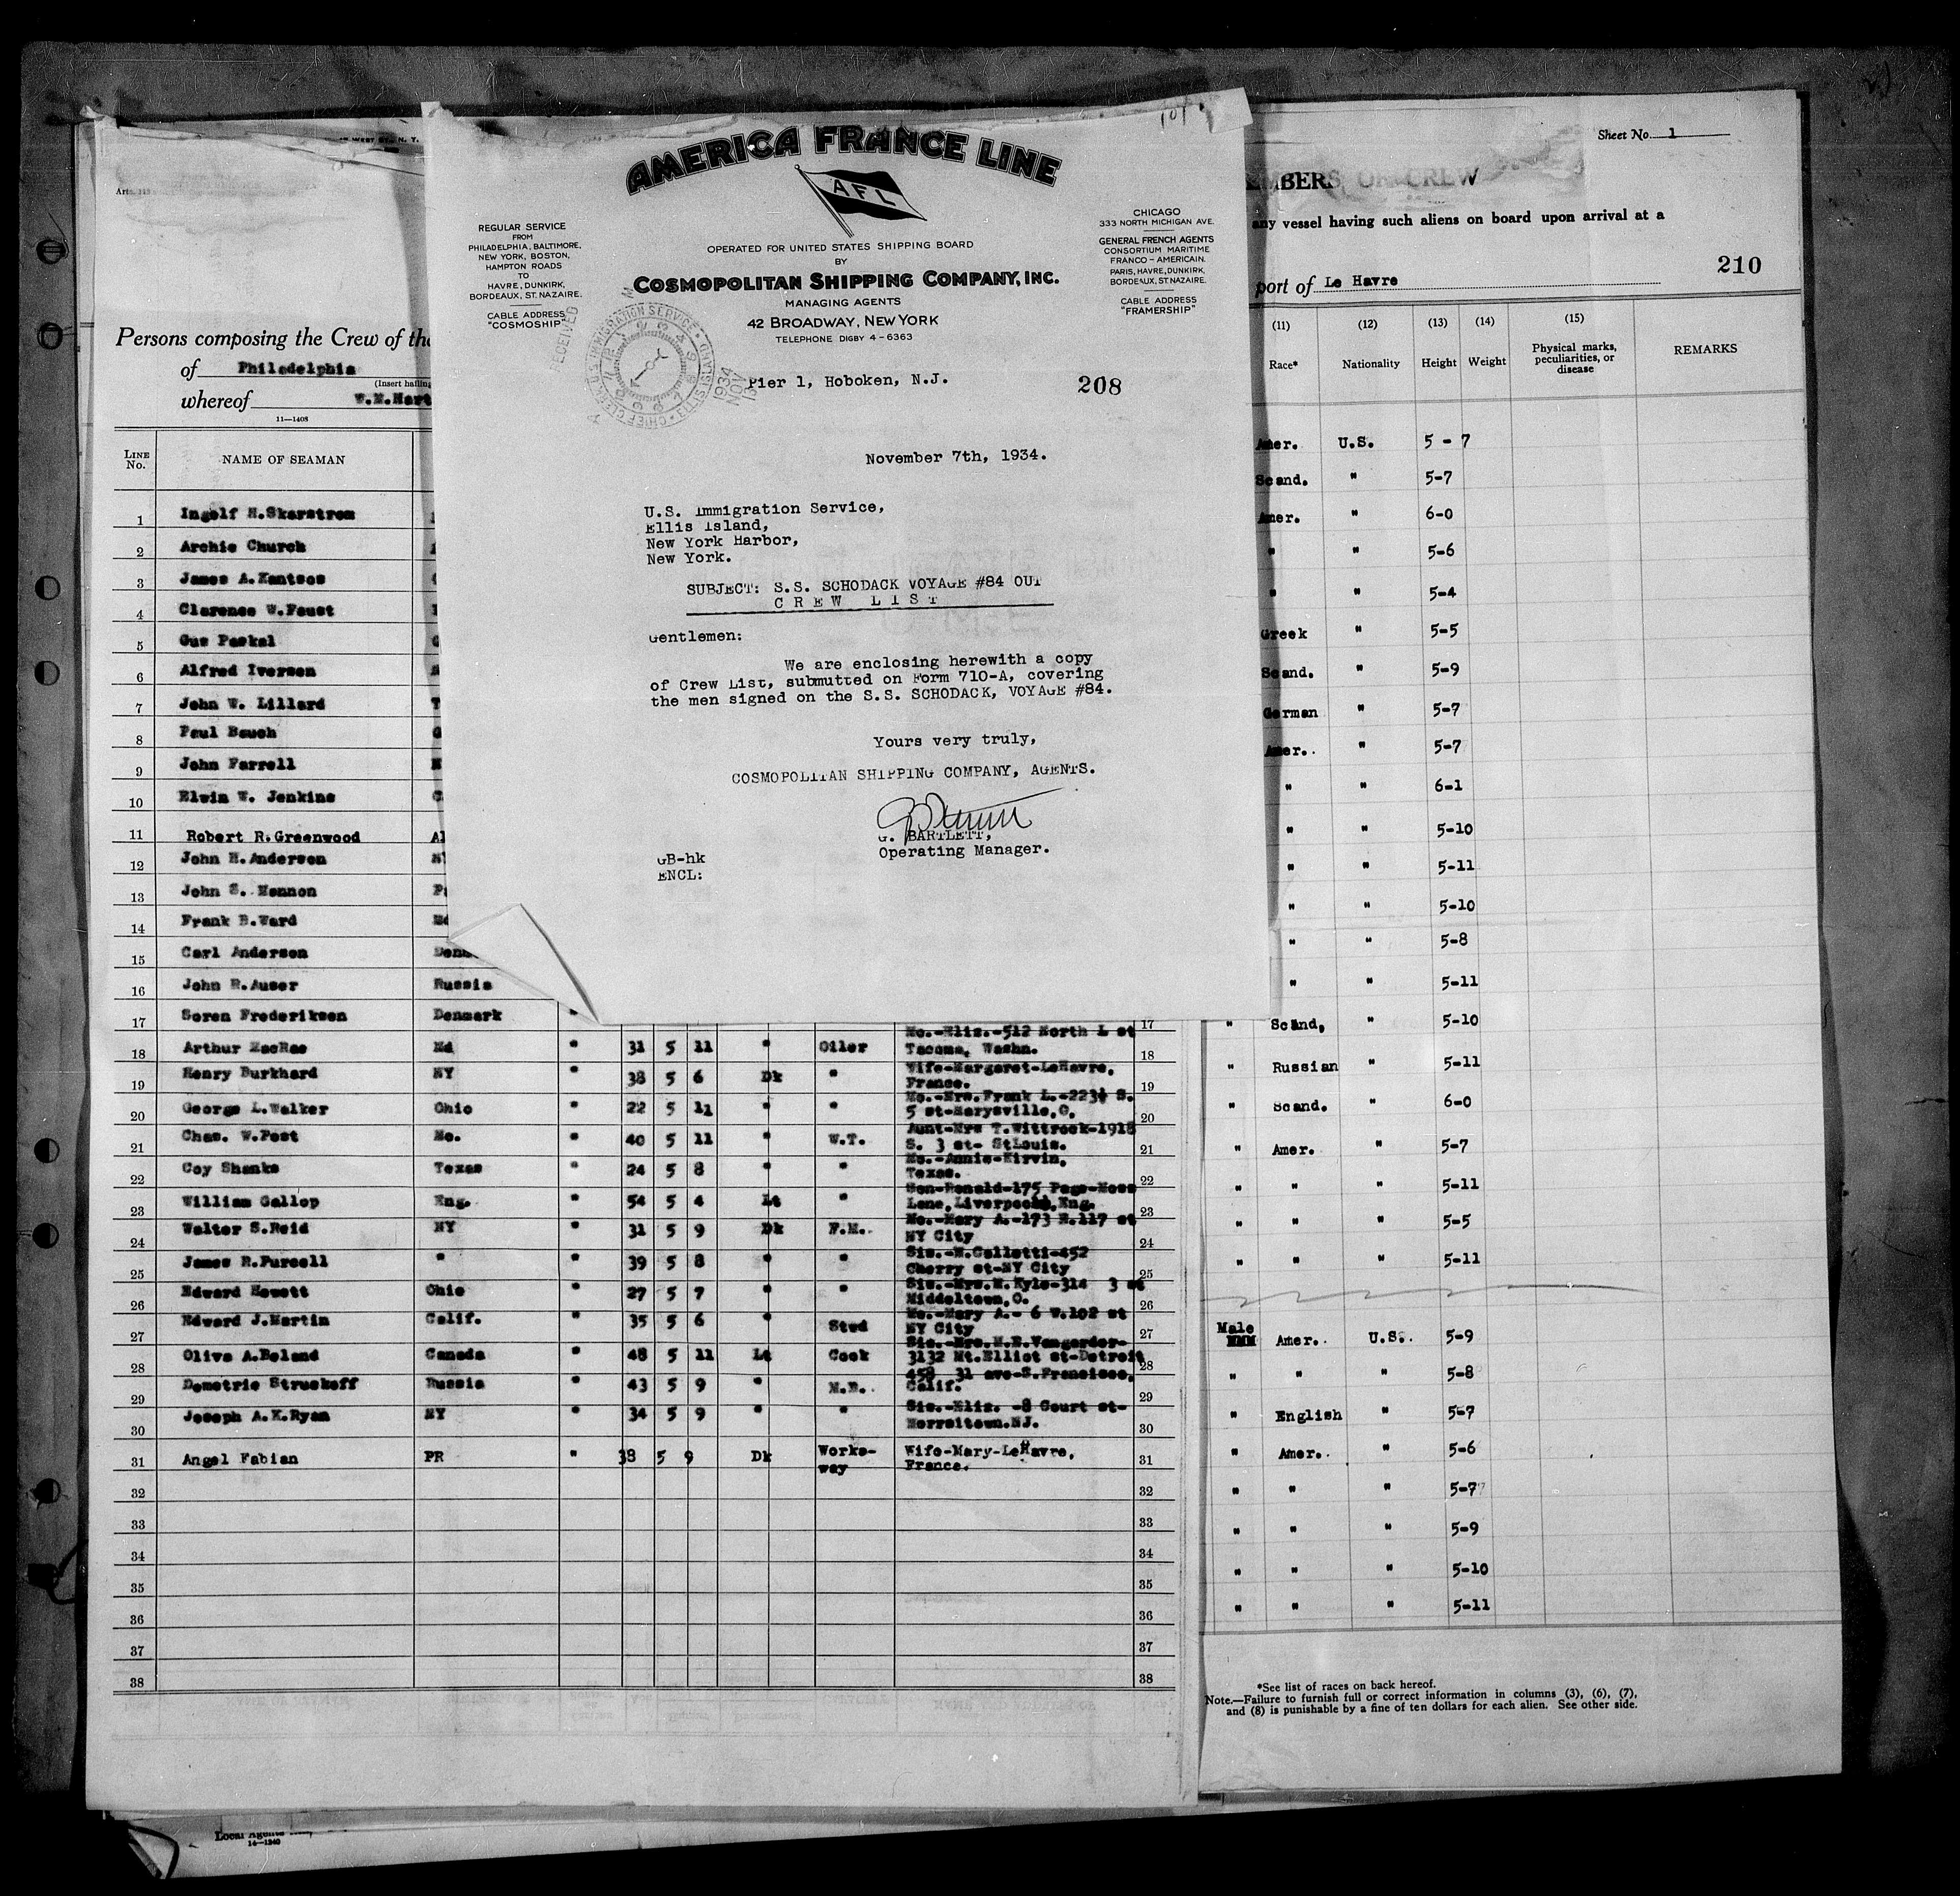 AMERICA FRANCE LINE
AFL
REGULAR SERVICE
FROM
PHILADELPHIA, BALTIMORE,
NEW YORK, BOSTON,
HAMPTON ROADS
TO
HAVRE, DUNKIRK,
BORDEAUX, ST. NAZAIRE.
CABLE ADDRESS
"COSMOSHIP"
OPERATED FOR UNITED STATES SHIPPING BOARD
BY
COSMOPOLITAN SHIPPING COMPANY, INC.
MANAGING AGENTS
42 BROADWAY, NEW YORK
TELEPHONE DIGBY 4-6363
CHICAGO
333 NORTH MICHIGAN AVE.
GENERAL FRENCH AGENTS
CONSORTIUM MARITIME
FRANCO-AMERICAIN.
PARIS, HAVRE, DUNKIRK,
BORDEAUX, ST. NAZAIRE.
CABLE ADDRESS
"FRAMERSHIP"
RECEIVED
CHIEF CLERK U.S. IMMIGRATION SERVICE ELLIS ISLAND
1934 NOV
Pier 1, Hoboken, N.J.
208
November 7th, 1934.
U.S. Immigration Service,
Ellis Island,
New York Harbor,
New York.
SUBJECT: S.S. SCHODACK VOYAGE #84 OUT
C R E W L I S T
Gentlemen:
We are enclosing herewith a copy
of Crew List, submutted on Form 710-A, covering
the men signed on the S.S. SCHODACK, VOYAGE #84.
Yours very truly,
COSMOPOLITAN SHIPPING COMPANY, AGENTS.
G. BARTLETT,
Operating Manager.
GB-hk
ENCL:
WEST ST., N. Y.
Persons composing the Crew of the
of Philadelphia
(Insert hailing
whereof W.N.Hart
11—1408
LINE No. NAME OF SEAMAN
1 Ingolf H.Skarstrom
2 Archie Church
3 James A.Kantsos
4 Clarence W.Faust
5 Gus Paskal
6 Alfred Iversen
7 John W. Lillard
8 Paul Bauch
9 John Farrell
10 Elwin W. Jenkins
11 Robert R.Greenwood Al
12 John H.Anderson
13 John S. Hennon
14 Frank B.Ward
15 Carl Anderson
16 John R.Auser Russia
17 Soren Frederiksen Denmark " 17
18 Arthur MacRae Md " 31 5 11 " Oiler Mo.-Eliz.-512 North L st Tacoma, Washn. 18
19 Henry Burkhard NY " 38 5 6 Dk " Wife-Margaret-LeHavre, France. 19
20 George L.Walker Ohio " 22 5 11 " " Mo.-Mrs.Frank L.-223½ S. 5 st-Marysville,O. 20
21 Chas. W.Post Mo. " 40 5 11 " W.T. Aunt-Mrs T.Wittrock-1918 S. 3 st- StLouis. 21
22 Coy Shanks Texas " 24 5 8 " " Mo.-Annie-Kirvin, Texas. 22
23 William Gallop Eng. " 54 5 4 Lt " Son-Ronald-175 Page-Moss Lane, Liverpool, Eng. 23
24 Walter S.Reid NY " 31 5 9 Dk F.M. Mo.-Mary A.-173 E.117 st NY City 24
25 James R.Purcell " " 39 5 8 " " Sis.-M.Colletti-452 Cherry st-NY City 25
26 Edward Hewett Ohio " 27 5 7 " " Sis.-Mrs.M.Kyle-314 3 st Middeltown,O. 26
27 Edward J.Martin Calif. " 35 5 6 " Stwd Mo.-Mary A.- 6 W.102 st NY City 27
28 Oliva A.Beland Canada " 48 5 11 Lt Cook Sis.-Mrs.M.B.Vangorder-3132 Mt.Elliot st-Detroit 28
29 Demetrie Struckoff Russia " 43 5 9 " M.B. 458 31 ave-S.Francisco, Calif. 29
30 Joseph A.K.Ryan NY " 34 5 9 " " Sis.-Eliz. -8 Court st-Morreitown.NJ. 30
31 Angel Fabian PR " 38 5 9 Dk Works-way Wife-Mary-LeHavre, France. 31
32 32
33 33
34 34
35 35
36 36
37 37
38 38
Sheet No. 1
MBERS OF CREW
any vessel having such aliens on board upon arrival at a
210
port of Le Havre
(11) (12) (13) (14) (15)
Race* Nationality Height Weight Physical marks, peculiarities, or disease REMARKS
Amer. U.S. 5 - 7
Scand. " 5-7
Amer. " 6-0
" " 5-6
" " 5-4
Greek " 5-5
Scand. " 5-9
German " 5-7
Amer. " 5-7
" " 6-1
" " 5-10
" " 5-11
" " 5-10
" " 5-8
" " 5-11
" Scand, " 5-10
" Russian " 5-11
" Scand. " 6-0
" Amer. " 5-7
" " " 5-11
" " " 5-5
" " " 5-11
Male Amer. U.S. 5-9
" " " 5-8
" English " 5-7
" Amer. " 5-6
" " " 5-7
" " " 5-9
" " " 5-10
" " " 5-11
*See list of races on back hereof.
Note.—Failure to furnish full or correct information in columns (3), (6), (7),
and (8) is punishable by a fine of ten dollars for each alien. See other side.
Local Agents
14—1240